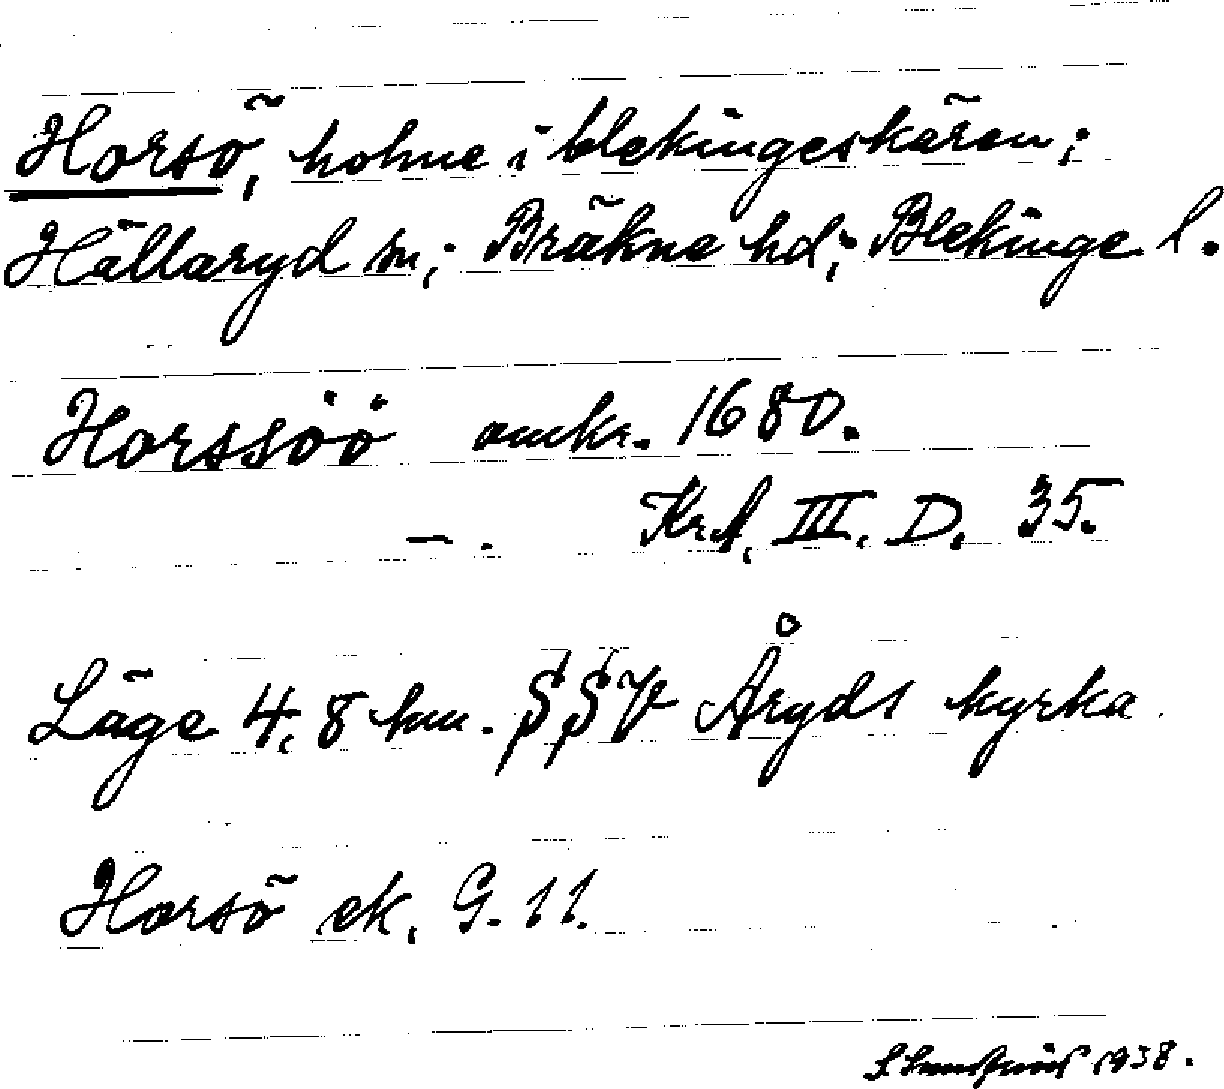 Horsö, holme i blekingeskären;
Hällaryd sn; Bräkne hd; Blekinge l.
Horssöö omkr. 1680.
— . KrA. III. D. 35.
Läge 4,8 km. SSV Åryds kyrka.
Horsö ek. G. 11.
1938.